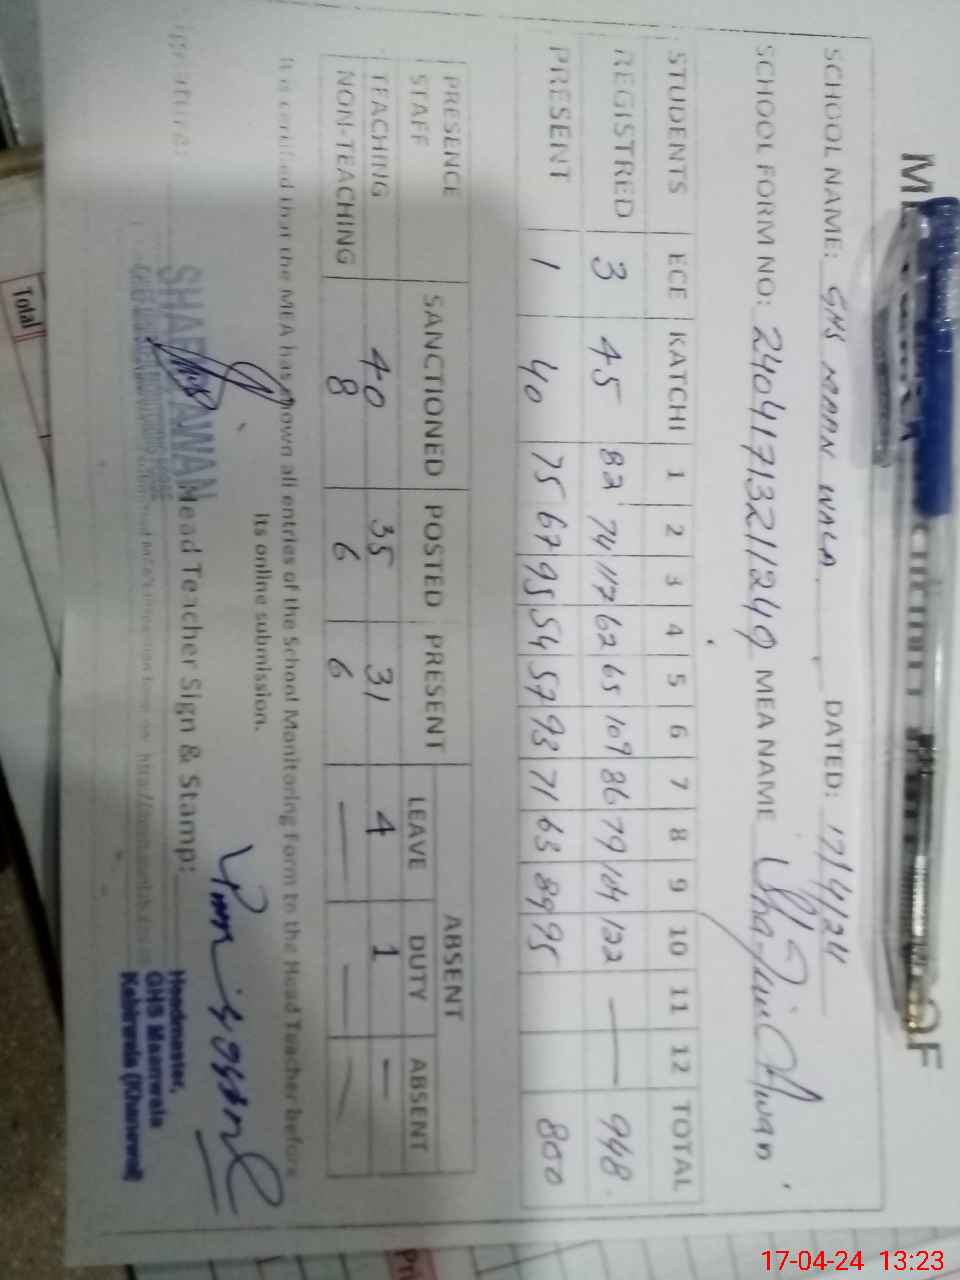 OF
SCHOOL NAME: GHS MAAN WALA DATED: 17/4/24
SCHOOL FORM NO: 24041713211249 MEA NAME Shafiul Awan
STUDENTS ECE KATCHI 1 2 3 4 5 6 7 8 9 10 11 12 TOTAL
REGISTRED 3 45 82 74 117 62 65 109 86 79 104 122 — 948
PRESENT 1 40 75 67 95 54 57 93 71 63 89 95 800
PRESENCE ABSENT
STAFF SANCTIONED POSTED PRESENT LEAVE DUTY ABSENT
TEACHING 40 35 31 4 1 —
NON-TEACHING 8 6 6 — — —
It is certified that the MEA has shown all entries of the School Monitoring Form to the Head Teacher before
its online submission.
Head Teacher Sign & Stamp:
Headmaster,
GHS Maanwala
Kabirwala (Khanewal)
Total
Pri
17-04-24 13:23